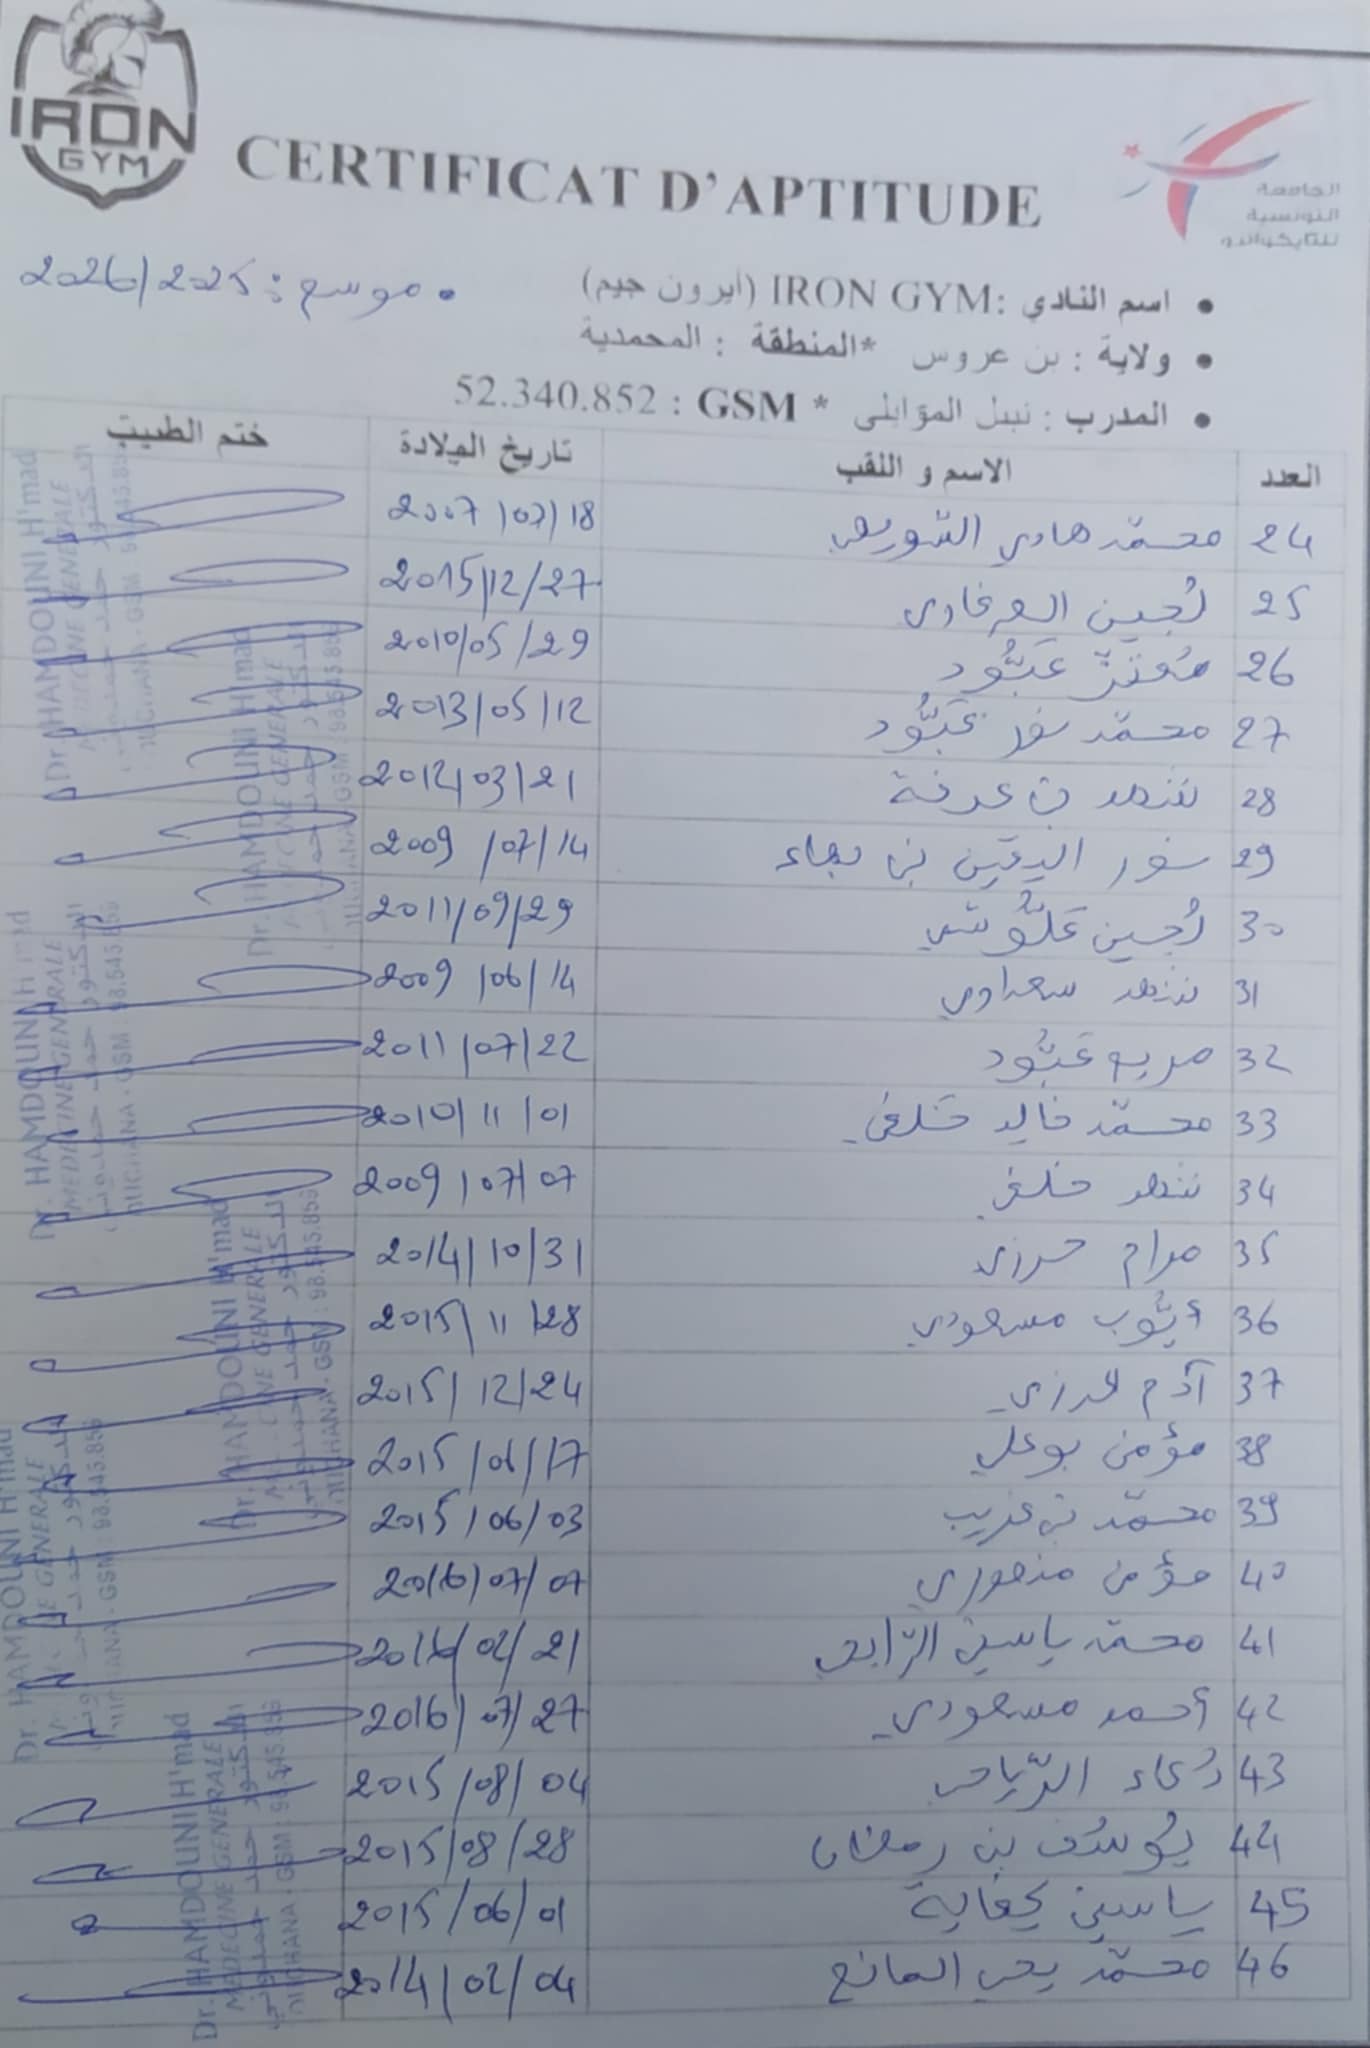 IRON
GYM
CERTIFICAT D'APTITUDE
الجامعة
التونسية
للتايكواندو
• موسم : 2026/2025
• اسم النادي :IRON GYM (أيرون جيم)
• ولاية : بن عروس *المنطقة : المحمدية
• المدرب : نبيل المؤابلي * GSM : 52.340.852
العدد الاسم و اللقب تاريخ الولادة ختم الطبيب
24 محمّد هادي 2007/07/18
25 لُجين 2015/12/27
26 مُعتز عَبُّود 2010/05/29
27 محمّد نور عَبُّود 2013/05/12
28 شهد بن عرفة 2012/03/21
29 نور اليقين بن بهاء 2009/07/14
30 لُجين عَلُّوشي 2011/09/29
31 شهد سعداوي 2009/06/14
32 مريم عَبُّود 2011/07/22
33 محمّد خالد خلفي 2010/11/01
34 شهد خلفي 2009/07/07
35 مرام حرزي 2014/10/31
36 أيّوب مسعودي 2015/11/28
37 آدم 2015/12/24
38 مؤمن بوعلي 2015/06/17
39 محمّد بن غريب 2015/06/03
40 مؤمن منصوري 2016/07/07
41 محمّد ياسين الرّابحي 2016/02/21
42 أحمد مسعودي 2016/07/27
43 دُعاء الرّياحي 2015/08/04
44 يُوسُف بن رمضان 2015/08/28
45 ياسين 2015/06/01
46 محمّد يحي المانع 2014/02/04
Dr. HAMDOUNI H'mad
MEDECINE GENERALE
الدكتور حمد حمدوني
GSM : 98.545.856